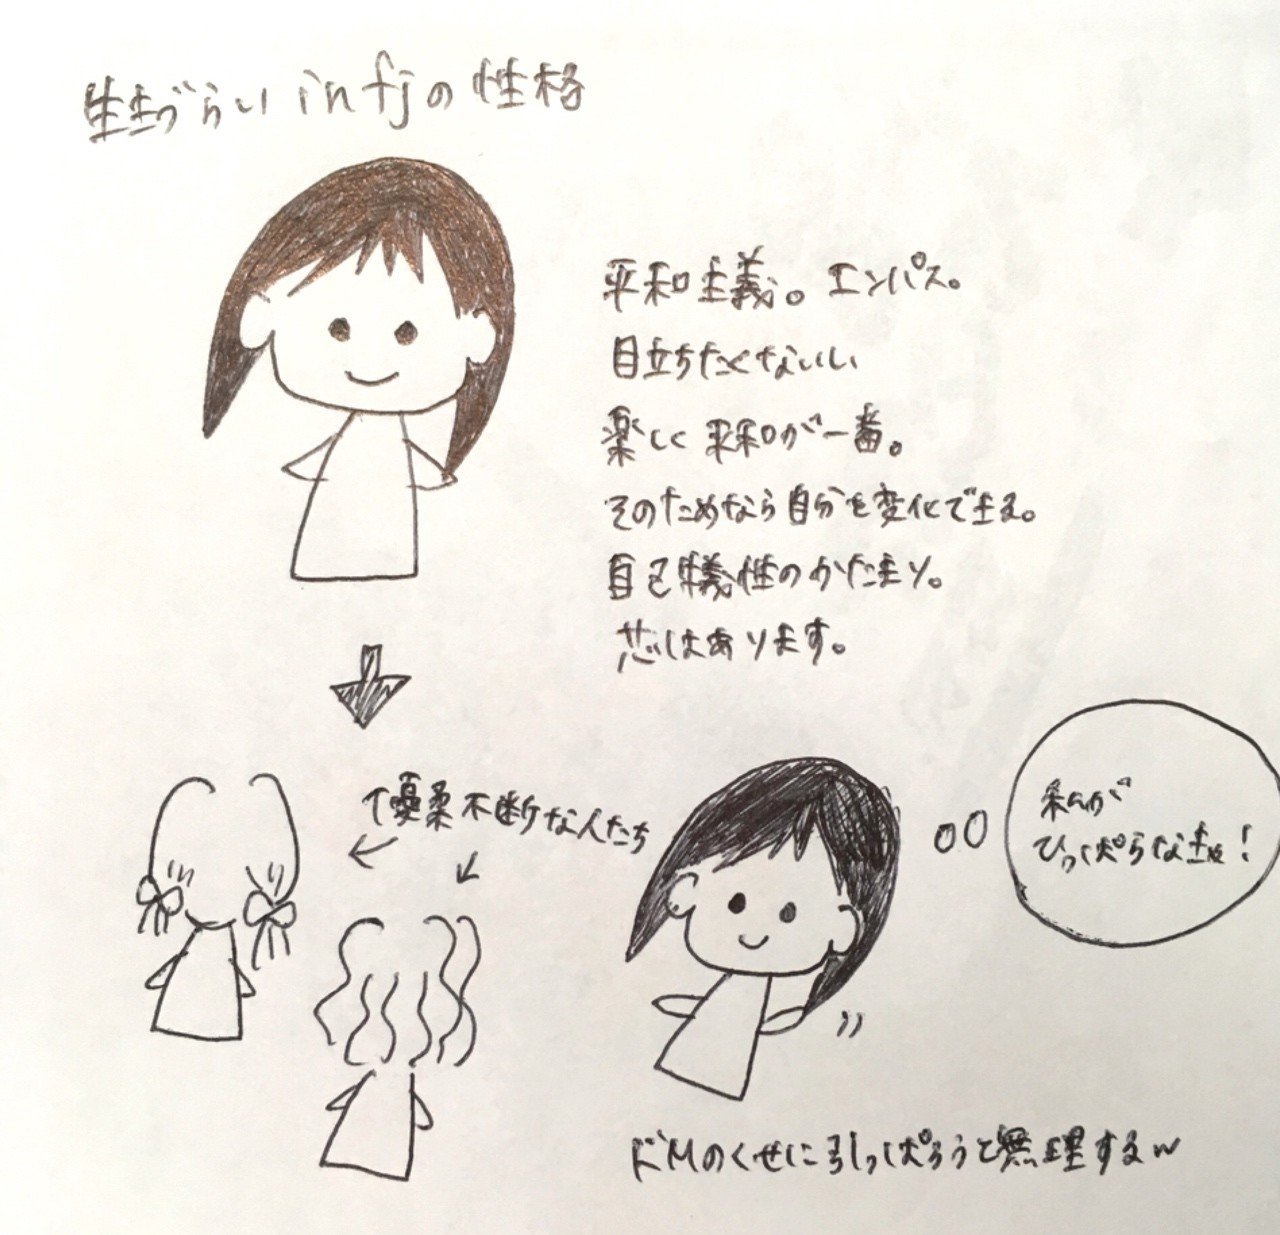 生きづらいinfjの性格
平和主義。エンパス。
目立ちたくないし
楽しく平和が一番。
そのためなら自分を変化できる。
自己犠牲のかたまり。
芯はあります。
↑優柔不断な人たち
私が
ひっぱらなきゃ!
ドMのくせに引っぱろうと無理するw